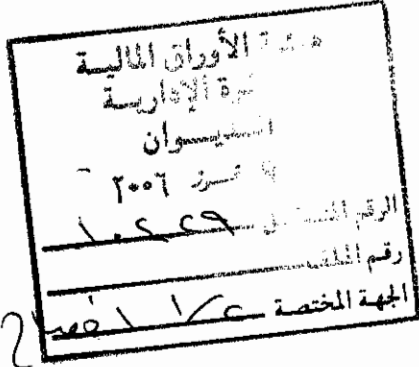 هيئة الأوراق المالية
الإدارية
الديوان
تموز ٢٠٠٦
الرقم المتسلسل ١٠٢٢٩
رقم الملف
الجهة المختصة